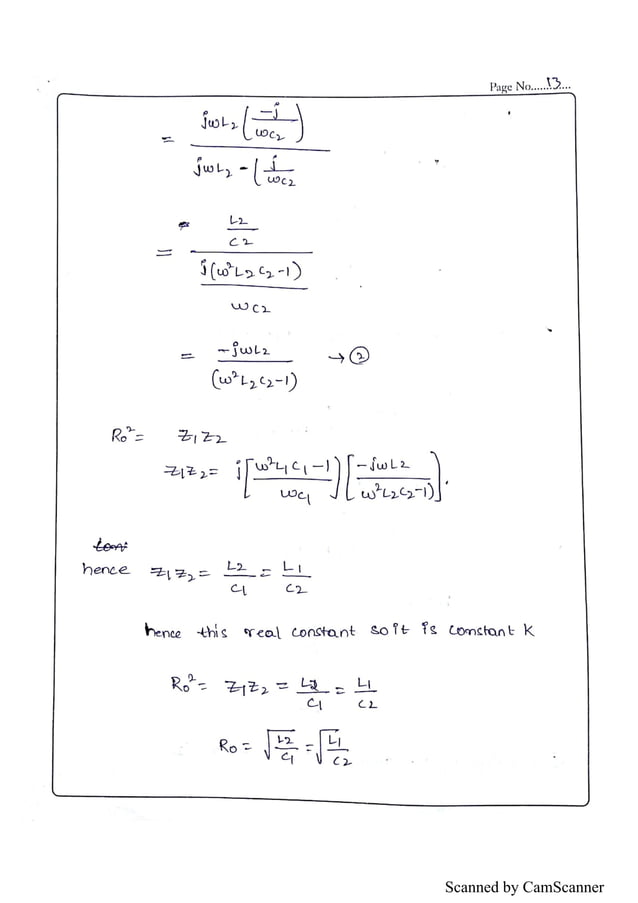 Page No......13....
= jωL2 (-j/ωC2) / jωL2 - (j/ωC2
= L2/C2 / j(ω²L2C2-1)/ωC2
= -jωL2 / (ω²L2C2-1) → ②
R0² = Z1Z2
Z1Z2 = j[ω²L1C1-1 / ωC1] [-jωL2 / ω²L2C2-1)].
hence Z1Z2 = L2/C1 = L1/C2
hence this real constant so it is comstant K
R0² = Z1Z2 = L2/C1 = L1/C2
R0 = √L2/C1 = √L1/C2
Scanned by CamScanner